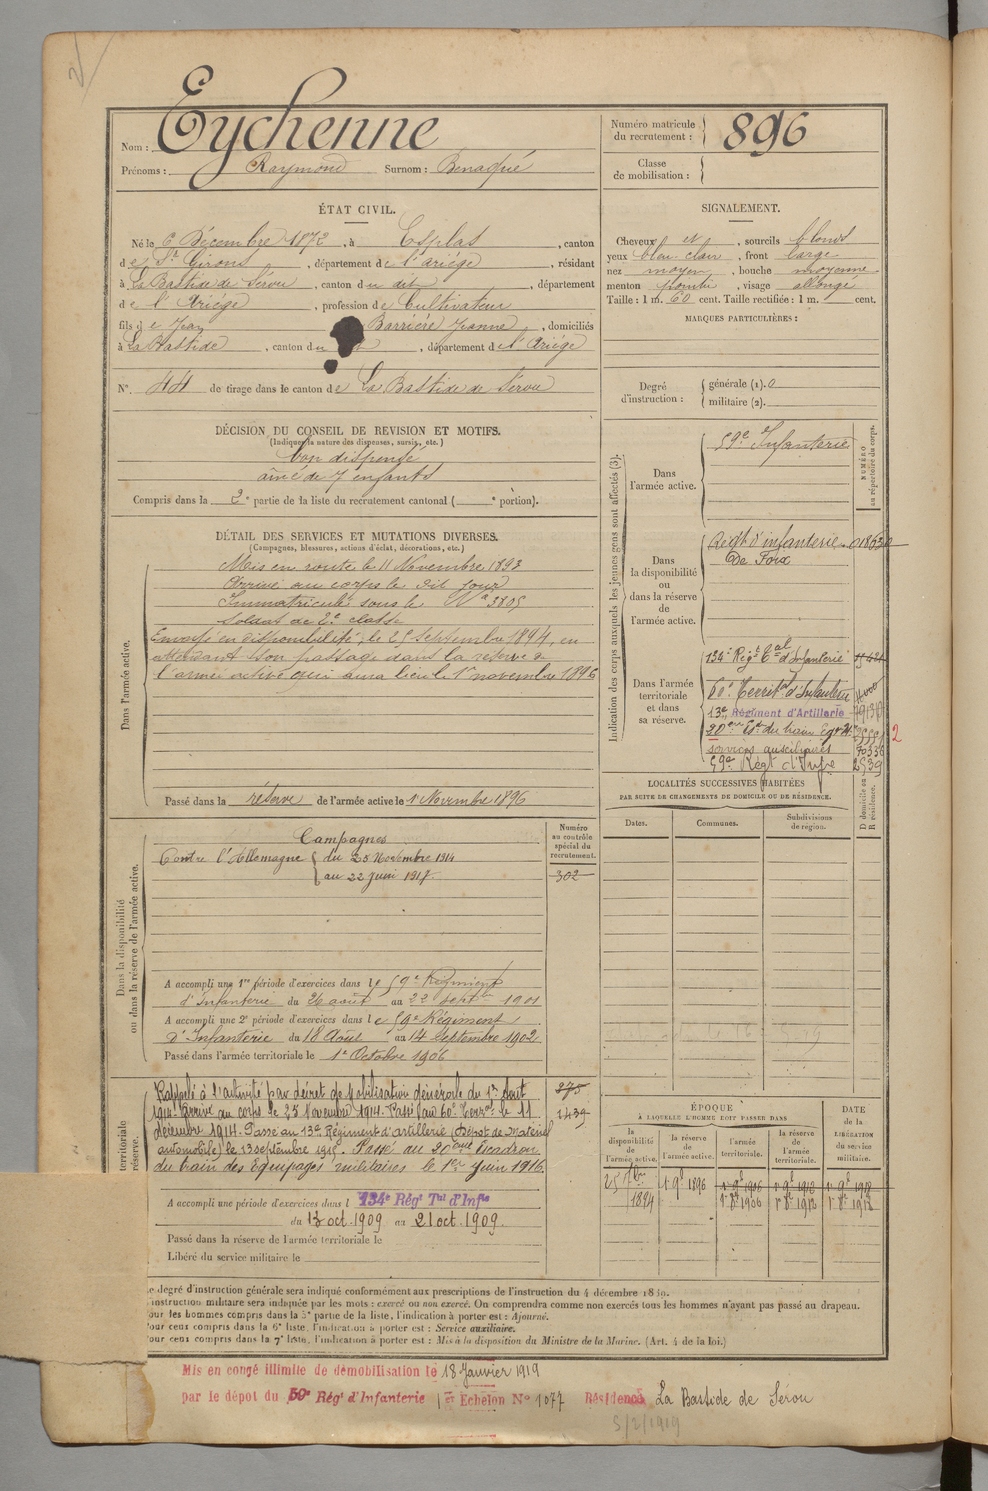 Nom : Eychenne
Prénoms : Raymond Surnom : Benaqué
Numéro matricule du recrutement : 896
Classe de mobilisation :
ÉTAT CIVIL.
Né le 6 Décembre 1872, à Esplas, canton
de St Girons, département de l'ariége, résidant
à La Bastide de Sérou, canton du dit, département
de l'Ariége, profession de Cultivateur
fils de Jean Barrière Jeanne, domiciliés
à La Bastide, canton du, département de l'Ariége
N°. 44 de tirage dans le canton de La Bastide de Sérou
SIGNALEMENT.
Cheveux et, sourcils blonds
yeux bleu clair, front large
nez moyen, bouche moyenne
menton pointu, visage allongé
Taille : 1 m. 60 cent. Taille rectifiée : 1 m. cent.
MARQUES PARTICULIÈRES :
Degré d'instruction :
générale (1). 0
militaire (2).
DÉCISION DU CONSEIL DE REVISION ET MOTIFS.
(Indiquer la nature des dispenses, sursis, etc.)
bon dispensé
ainé de 7 enfants
Compris dans la 2e partie de la liste du recrutement cantonal ( e portion).
DÉTAIL DES SERVICES ET MUTATIONS DIVERSES.
(Campagnes, blessures, actions d'éclat, décorations, etc.)
Dans l'armée active.
Mis en route le 11 Novembre 1893
Arrivé au corps le dit jour
Immatriculé sous le N° 3805
Soldat de 2e classe
Envoyé en disponibilité, le 25 Septembre 1894, en
attendant son passage dans la réserve de
l'armée active qui aura lieu le 1er novembre 1896
Passé dans la réserve de l'armée active le 1er Novembre 1896
Indication des corps auxquels les jeunes gens sont affectés (3).
NUMÉRO au répertoire du corps.
Dans l'armée active.
59e Infanterie
Dans la disponibilité ou dans la réserve de l'armée active.
Regt d'infanterie
De Foix
Dans l'armée territoriale et dans sa réserve.
134e Régt Tal d'Infanterie
60e Territal d'Infanterie
13e Régiment d'Artillerie
20eme Est du train Eqs
services auxiliaires
59e Régt d'Infie 2539
2
LOCALITÉS SUCCESSIVES HABITÉES
PAR SUITE DE CHANGEMENTS DE DOMICILE OU DE RÉSIDENCE.
D domicile ou R résidence.
Dates. Communes. Subdivisions de région.
Dans la disponibilité ou dans la réserve de l'armée active.
Numéro au contrôle spécial du recrutement.
302
Campagnes
Contre l'Allemagne du 25 Novembre 1914
au 22 Juin 1917.
A accompli une 1re période d'exercices dans le 59e Régiment
d'Infanterie du 26 août au 22 Sept. 1901
A accompli une 2e période d'exercices dans le 59e Régiment
d'Infanterie du 18 Aout au 14 Septembre 1902
Passé dans l'armée territoriale le 1er Octobre 1906
territoriale
réserve.
Rappelé à l'activité par décret de Mobilisation générale du 1er Août
1914. Arrivé au corps le 25 Novembre 1914. Passé au 60e Terral le 11
décembre 1914. Passé au 13e Régiment d'artillerie (Dépôt de Matériel
automobile) le 13 septembre 1915. Passé au 20eme Escadron
du train des équipages militaires le 1er Juin 1916.
375
1439
A accompli une période d'exercices dans l 134e Régt Tal d'Infie
du 13 oct. 1909 au 21 oct. 1909.
Passé dans la réserve de l'armée territoriale le
Libéré du service militaire le
ÉPOQUE
À LAQUELLE L'HOMME DOIT PASSER DANS
la disponibilité de l'armée active.
la réserve de l'armée active.
l'armée territoriale.
la réserve de l'armée territoriale.
DATE de la LIBÉRATION du service militaire.
25 7bre 1894
1er 9e 1896
1er 9e 1906 1er 9e 1912 1er 9e 1918
1er 8e 1906 1er 8e 1912 1er 8e 1918
Le degré d'instruction générale sera indiqué conformément aux prescriptions de l'instruction du 4 décembre 1889.
L'instruction militaire sera indiquée par les mots : exercé ou non exercé. On comprendra comme non exercés tous les hommes n'ayant pas passé au drapeau.
Pour les hommes compris dans la 5e partie de la liste, l'indication à porter est : Ajourné.
Pour ceux compris dans la 6e liste, l'indication à porter est : Service auxiliaire.
Pour ceux compris dans la 7e liste, l'indication à porter est : Mis à la disposition du Ministre de la Marine. (Art. 4 de la loi.)
Mis en congé illimité de démobilisation le 18 Janvier 1919
par le dépôt du 59e Régt d'Infanterie 1er Echelon N° 1077 Résidence La Bastide de Serou
5/2/1919